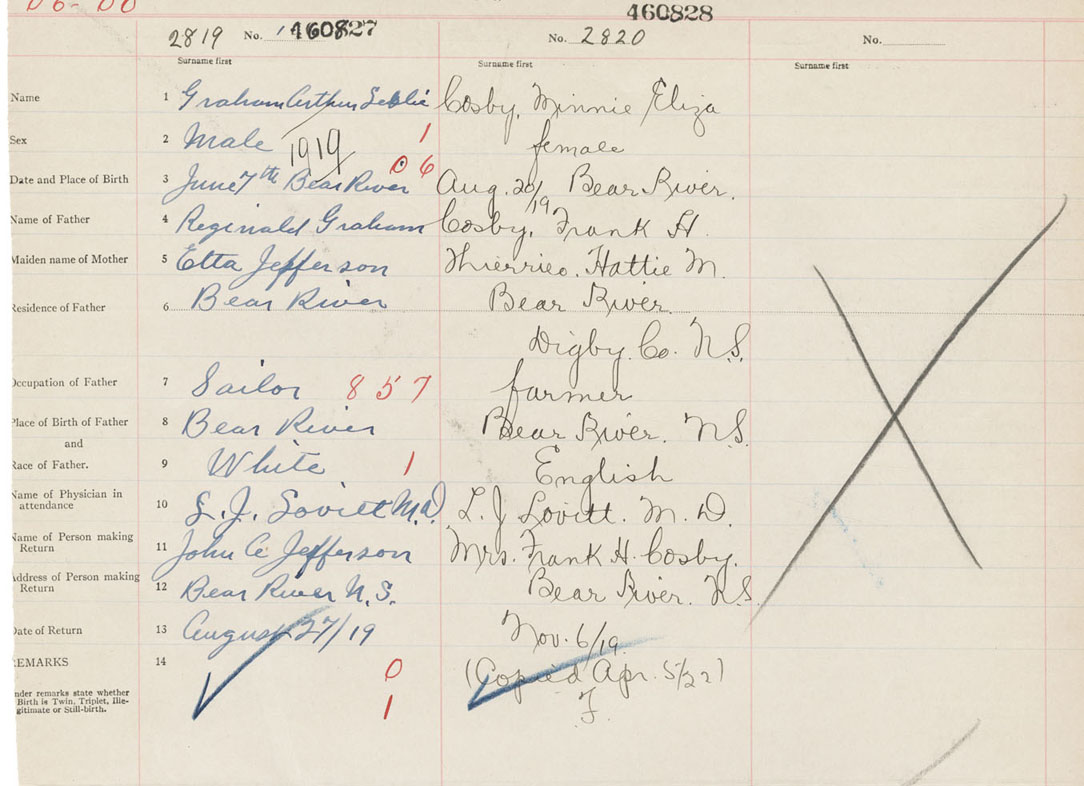 06-00
460828
2819 No. 460827 No. 2820 No.
Surname first Surname first Surname first
Name 1 Graham Arthur Leslie Cosby, Minnie Eliza
Sex 2 Male 1 female
1919 06
Date and Place of Birth 3 June 7th Bear River Aug. 20/19 Bear River.
Name of Father 4 Reginald Graham Cosby, Frank H.
Maiden name of Mother 5 Etta Jefferson Hattie M.
Residence of Father 6 Bear River Bear River
Digby Co. N.S.
Occupation of Father 7 Sailor 857 farmer
Place of Birth of Father 8 Bear River Bear River. N.S.
and
Race of Father. 9 White 1 English
Name of Physician in
attendance 10 L. J. Lovitt M.D. L. J Lovitt. M. D.
Name of Person making
Return 11 John C. Jefferson Mrs. Frank H. Cosby.
Address of Person making
Return 12 Bear River N.S. Bear River. N.S.
Date of Return 13 August 27/19 Nov. 6/19.
REMARKS 14 0 (Copied Apr. 5/22)
Under remarks state whether
Birth is Twin, Triplet, Ille-
gitimate or Still-birth. 1 F.